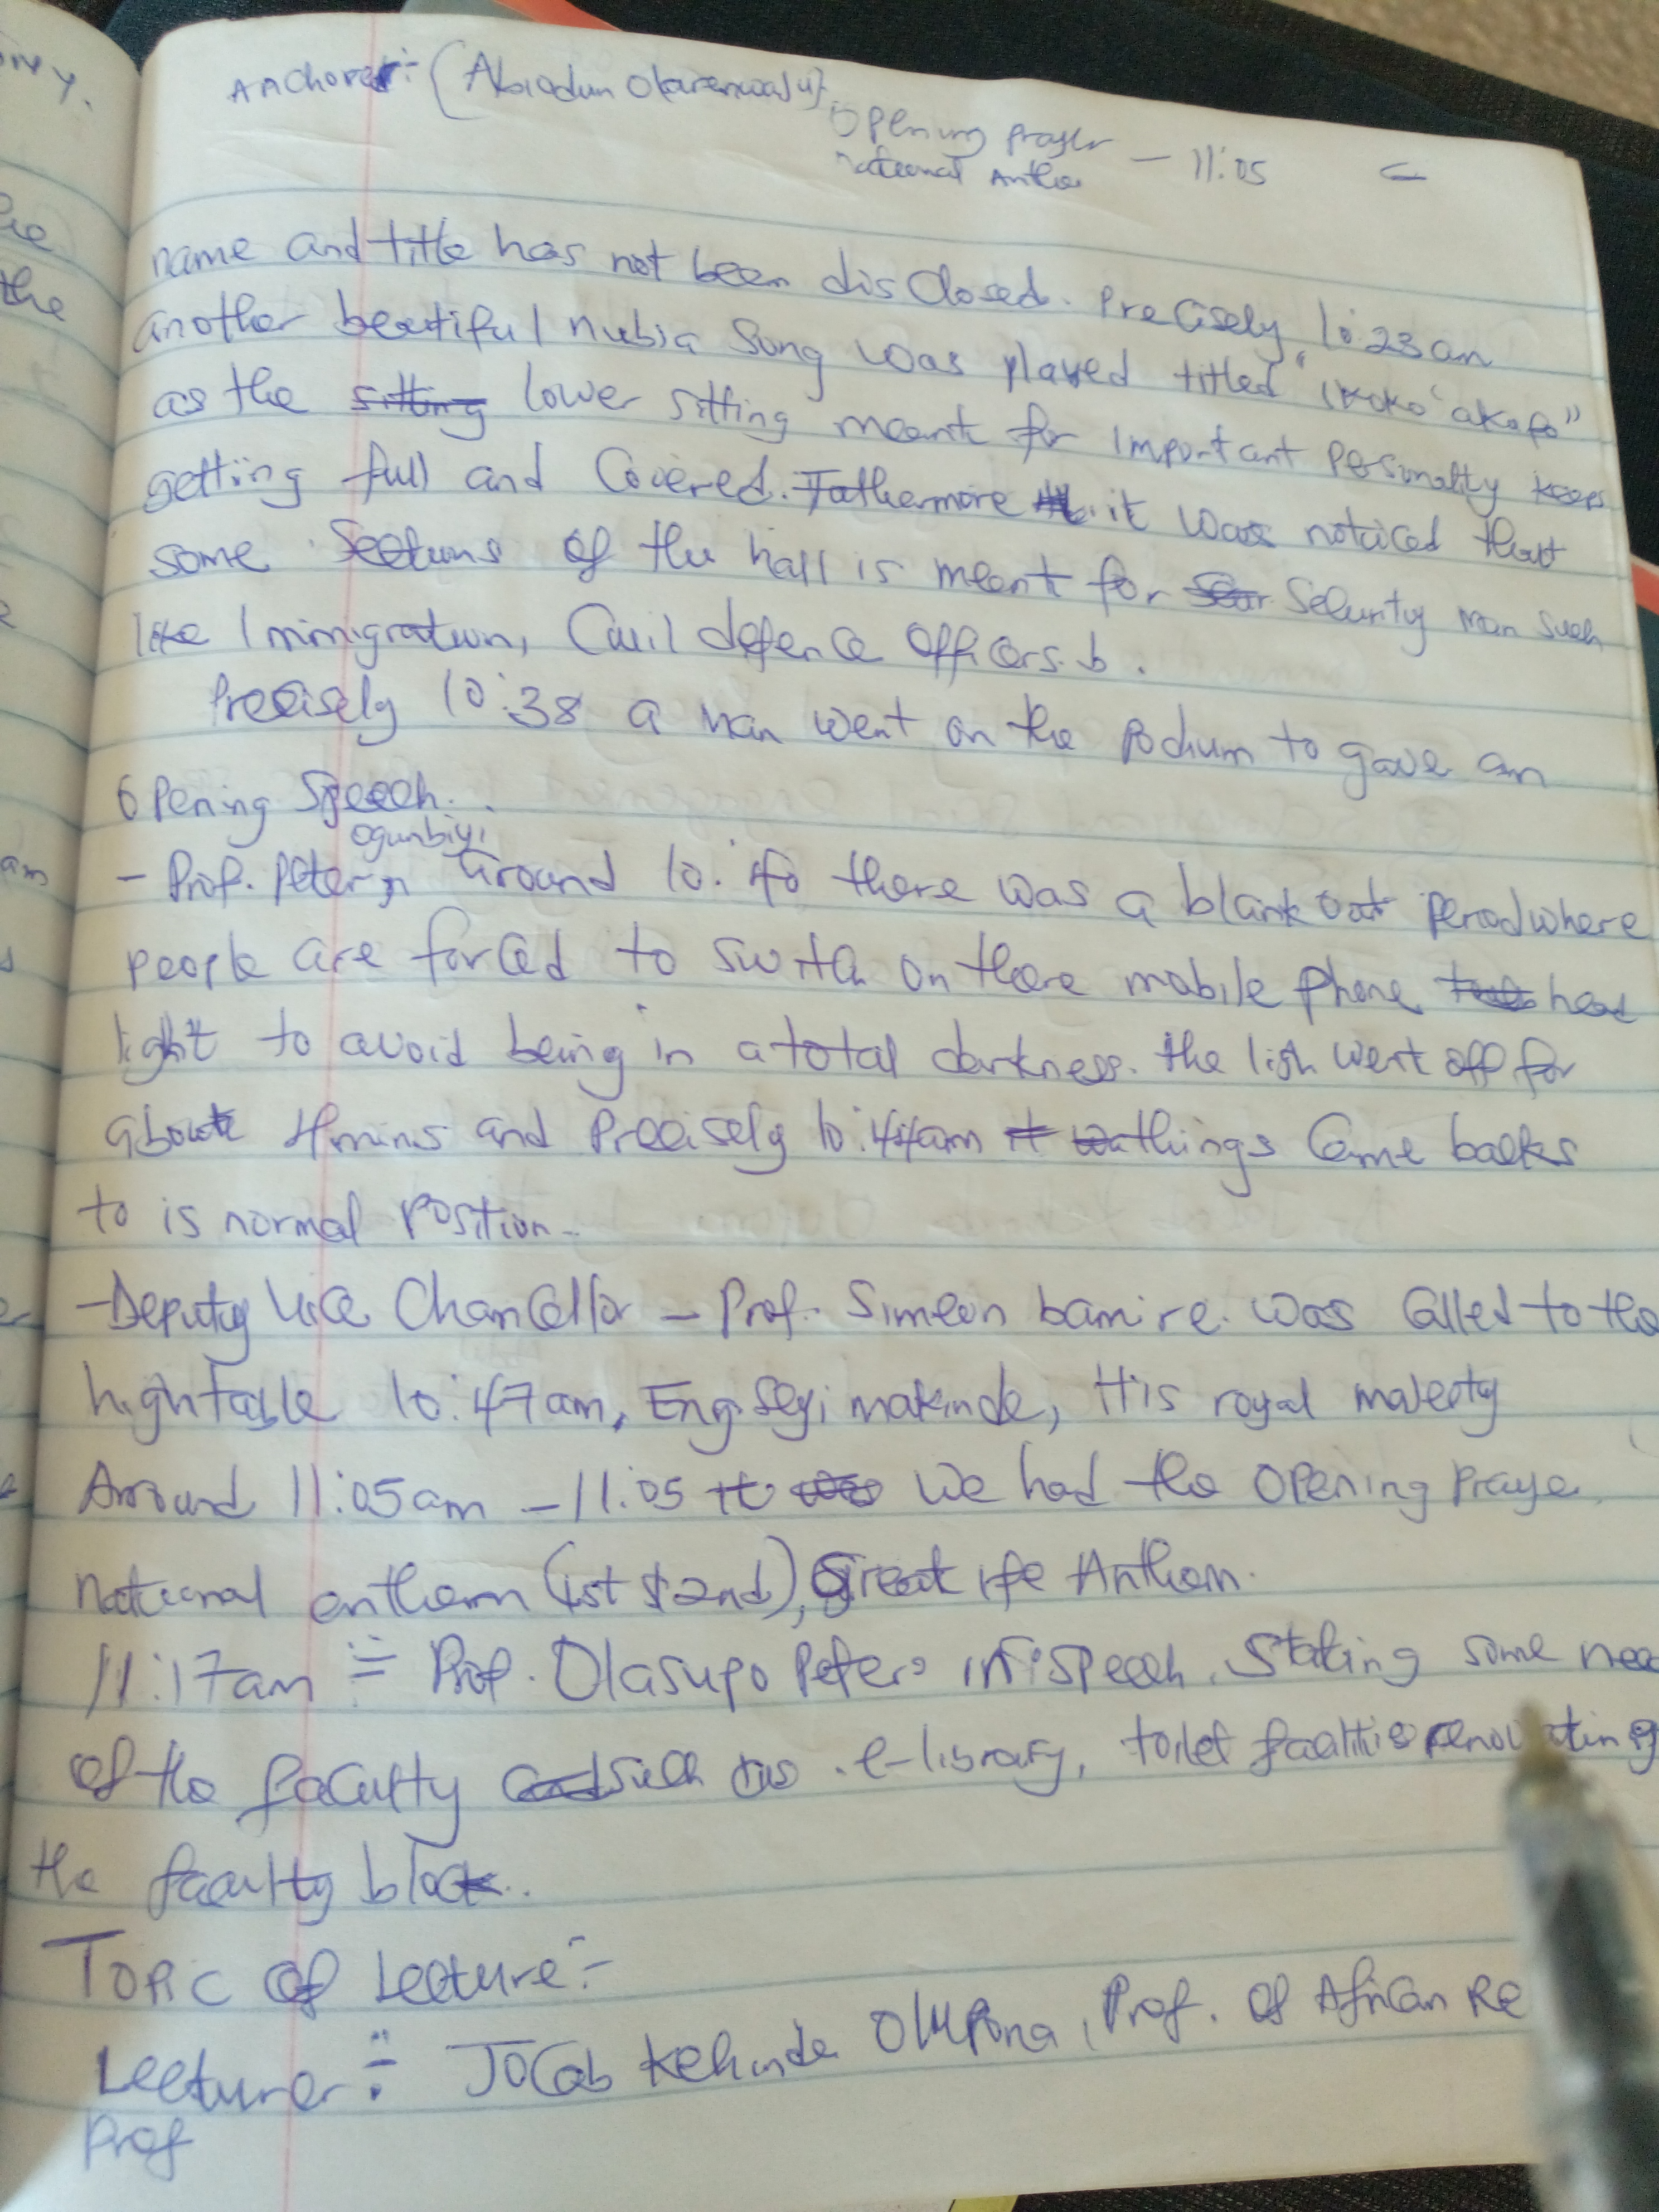 Anchorer:- (Abiodun Olarenwaju)
Opening prayer
National Anthe — 11:05
name and title has not been disclosed. Precisely 10:23am
another beautiful nubia song was played titled "Ikoko akufo"
as the sitting lower sitting meant for important personalty keeps
getting full and Covered. Fathermore it was noticed that
some Sections of the hall is meant for Security man such
like Immigration, Civil defence Officers.
Precisely 10:38 a man went on the podium to gave an
Opening Speech.
ogunbiyi
- Prof. Peter, Around 10:40 there was a blank out period where
people are forced to switch on there mobile phone head
light to avoid being in a total darkness. the ligh went off for
about 4mins and Precisely 10:44am things Came backs
to is normal Position-
-Deputy Vice Chancellor - Prof. Simeon bamire. was Called to the
hightable 10:47am, Eng. Seyi makinde, His royal majesty
Around 11:05am - 11:05 it was we had the opening Praye
National anthem (1st & 2nd), Great ife Anthem.
11:17am :- Prof. Olasupo Peter in is speech. Stating some nee
of the faculty and such as e-library, toilet facilities renovating
the faculty block.
Topic of Lecture:-
Lecturer:- Jocab Kehinde Olupona, Prof. of African Re
Prof